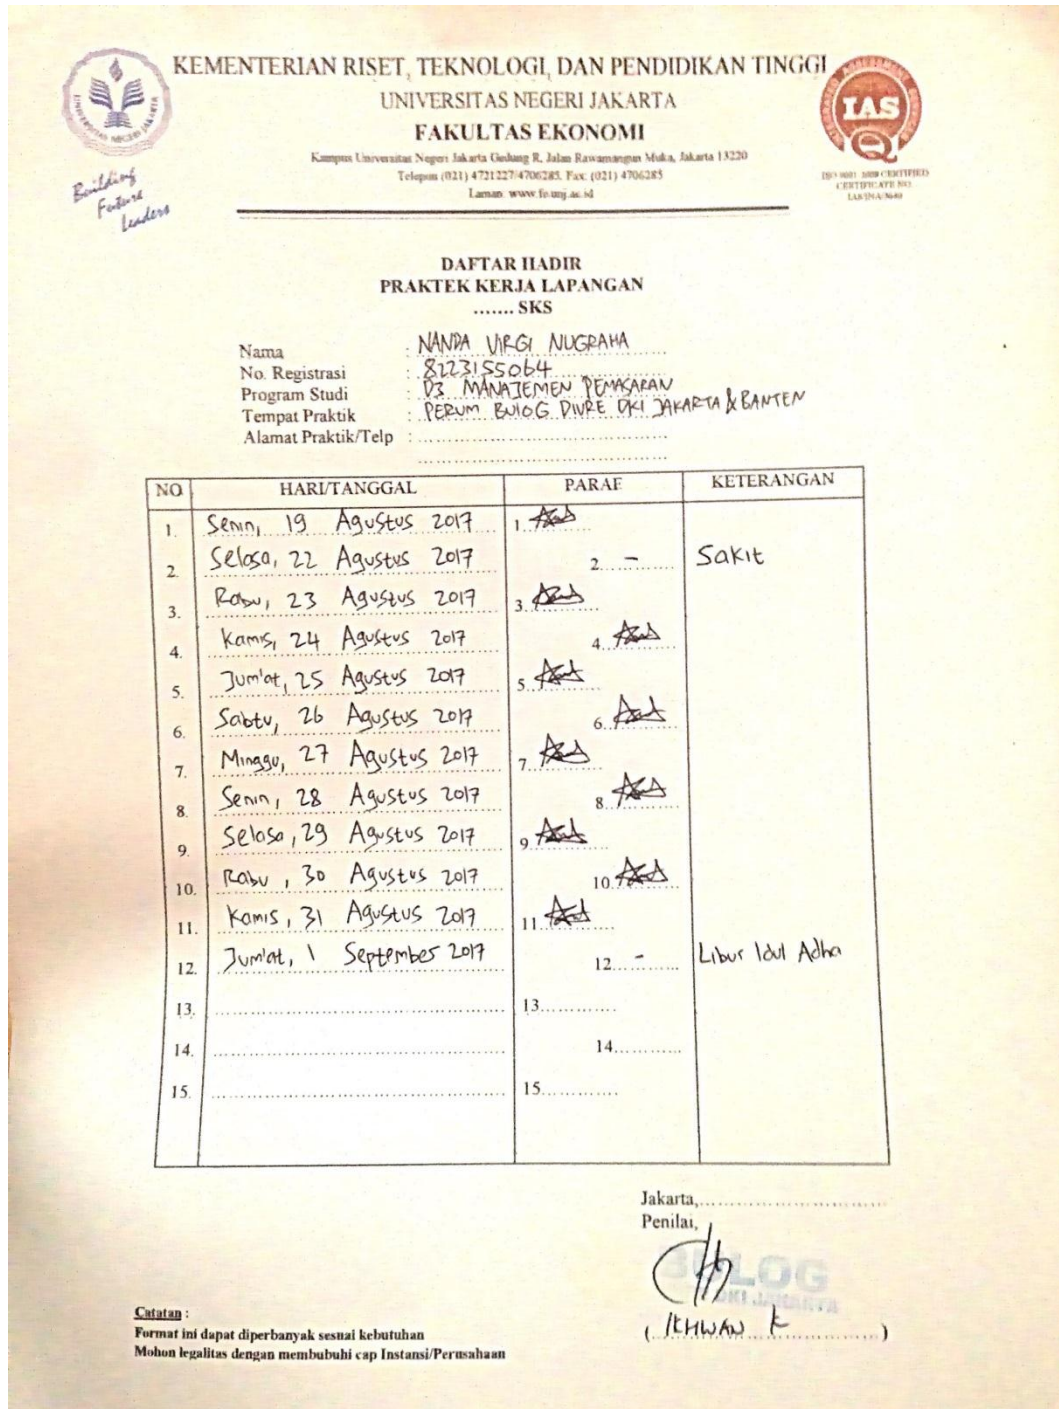 KEMENTERIAN RISET, TEKNOLOGI, DAN PENDIDIKAN TINGGI
UNIVERSITAS NEGERI JAKARTA
FAKULTAS EKONOMI
Kampus Universitas Negeri Jakarta Gedung R, Jalan Rawamangun Muka, Jakarta 13220
Telepon (021) 4721227/4706285, Fax: (021) 4706285
Laman: www.fe.unj.ac.id
UNIVERSITAS NEGERI JAKARTA
Building
Future
Leaders
IAS
ISO 9001:2008 CERTIFIED
CERTIFICATE NO:
DAFTAR HADIR
PRAKTEK KERJA LAPANGAN
....... SKS
Nama : NANDA VIRGI NUGRAHA
No. Registrasi : 8223155064
Program Studi : D3 MANAJEMEN PEMASARAN
Tempat Praktik : PERUM BULOG DIVRE DKI JAKARTA & BANTEN
Alamat Praktik/Telp :
NO HARI/TANGGAL PARAF KETERANGAN
1. Senin, 19 Agustus 2017 1.
2. Selasa, 22 Agustus 2017 2. - Sakit
3. Rabu, 23 Agustus 2017 3.
4. Kamis, 24 Agustus 2017 4.
5. Jum'at, 25 Agustus 2017 5.
6. Sabtu, 26 Agustus 2017 6.
7. Minggu, 27 Agustus 2017 7.
8. Senin, 28 Agustus 2017 8.
9. Selasa, 29 Agustus 2017 9.
10. Rabu, 30 Agustus 2017 10.
11. Kamis, 31 Agustus 2017 11.
12. Jum'at, 1 September 2017 12. - Libur Idul Adha
13. 13.
14. 14.
15. 15.
Jakarta,
Penilai,
BULOG
DKI JAKARTA
( IKHWAN K )
Catatan :
Format ini dapat diperbanyak sesuai kebutuhan
Mohon legalitas dengan membubuhi cap Instansi/Perusahaan